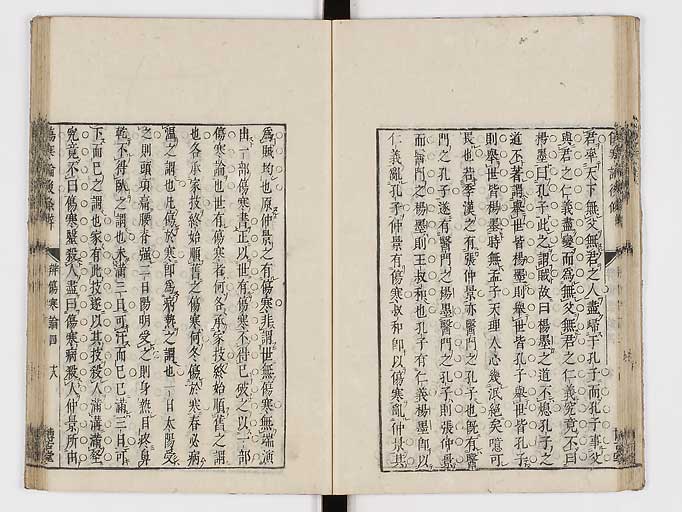 君率天下無父無君之人盡歸于孔子而孔子事父
與君之仁義盡變而為無父無君之仁義究竟不曰
楊墨曰孔子此之謂賊故曰楊墨之道不熄孔子之
道不著謂舉世皆楊墨則舉世皆孔子舉世皆孔子
則舉世皆楊墨時無孟子天理人心幾泯絕矣噫可
畏也若季漢之有張仲景亦醫門之孔子也既有醫
門之孔子遂有醫門之楊墨醫門之孔子則張仲景
而醫門楊墨則王叔和也孔子有仁義楊墨即以
仁義亂孔子仲景有傷寒叔和即以傷寒亂仲景其
為賊均也原仲景之有傷寒非謂世無傷寒無端演
出一部傷寒書正以世有傷寒不得已破之以一部
傷寒論也世有傷寒者何各承家技終始順舊之謂
也各承家技終始順舊之傷寒何冬傷於寒春必病
溫之謂也凡傷於寒即為病熱之謂也一日太陽受
之則頭項痛腰脊强二日陽明受之則身熱目疼鼻
乾不得臥之謂也未滿三日可汗而已已滿三日可
下而已之謂也家有此技遂以其技殺人滿溝滿壑
究竟不曰傷寒醫殺人盡曰傷寒病殺人仲景所由
傷寒論後條辨
辨傷寒論四